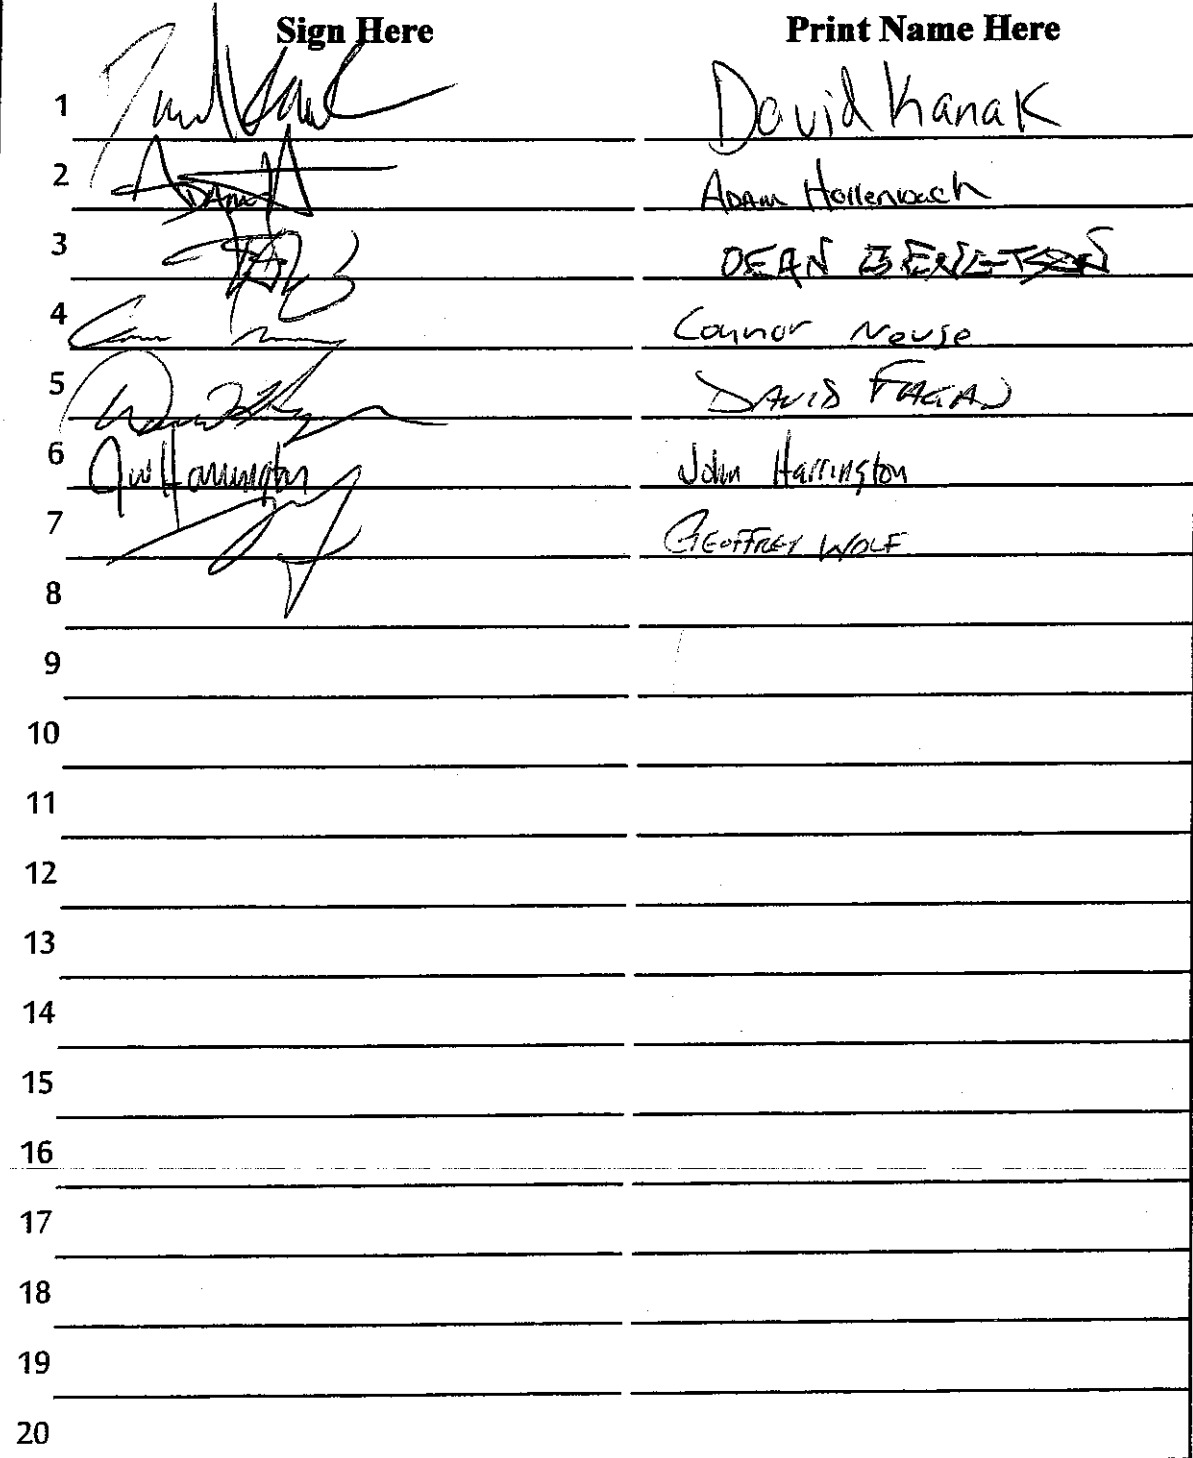 Sign Here Print Name Here
1 David Kanak
2 Adam Hollenbach
3 DEAN
4 Connor Neuse
5 DAVID FAGAN
6 Jw Harrington John Harrington
7 GEOFFREY WOLF
8
9
10
11
12
13
14
15
16
17
18
19
20